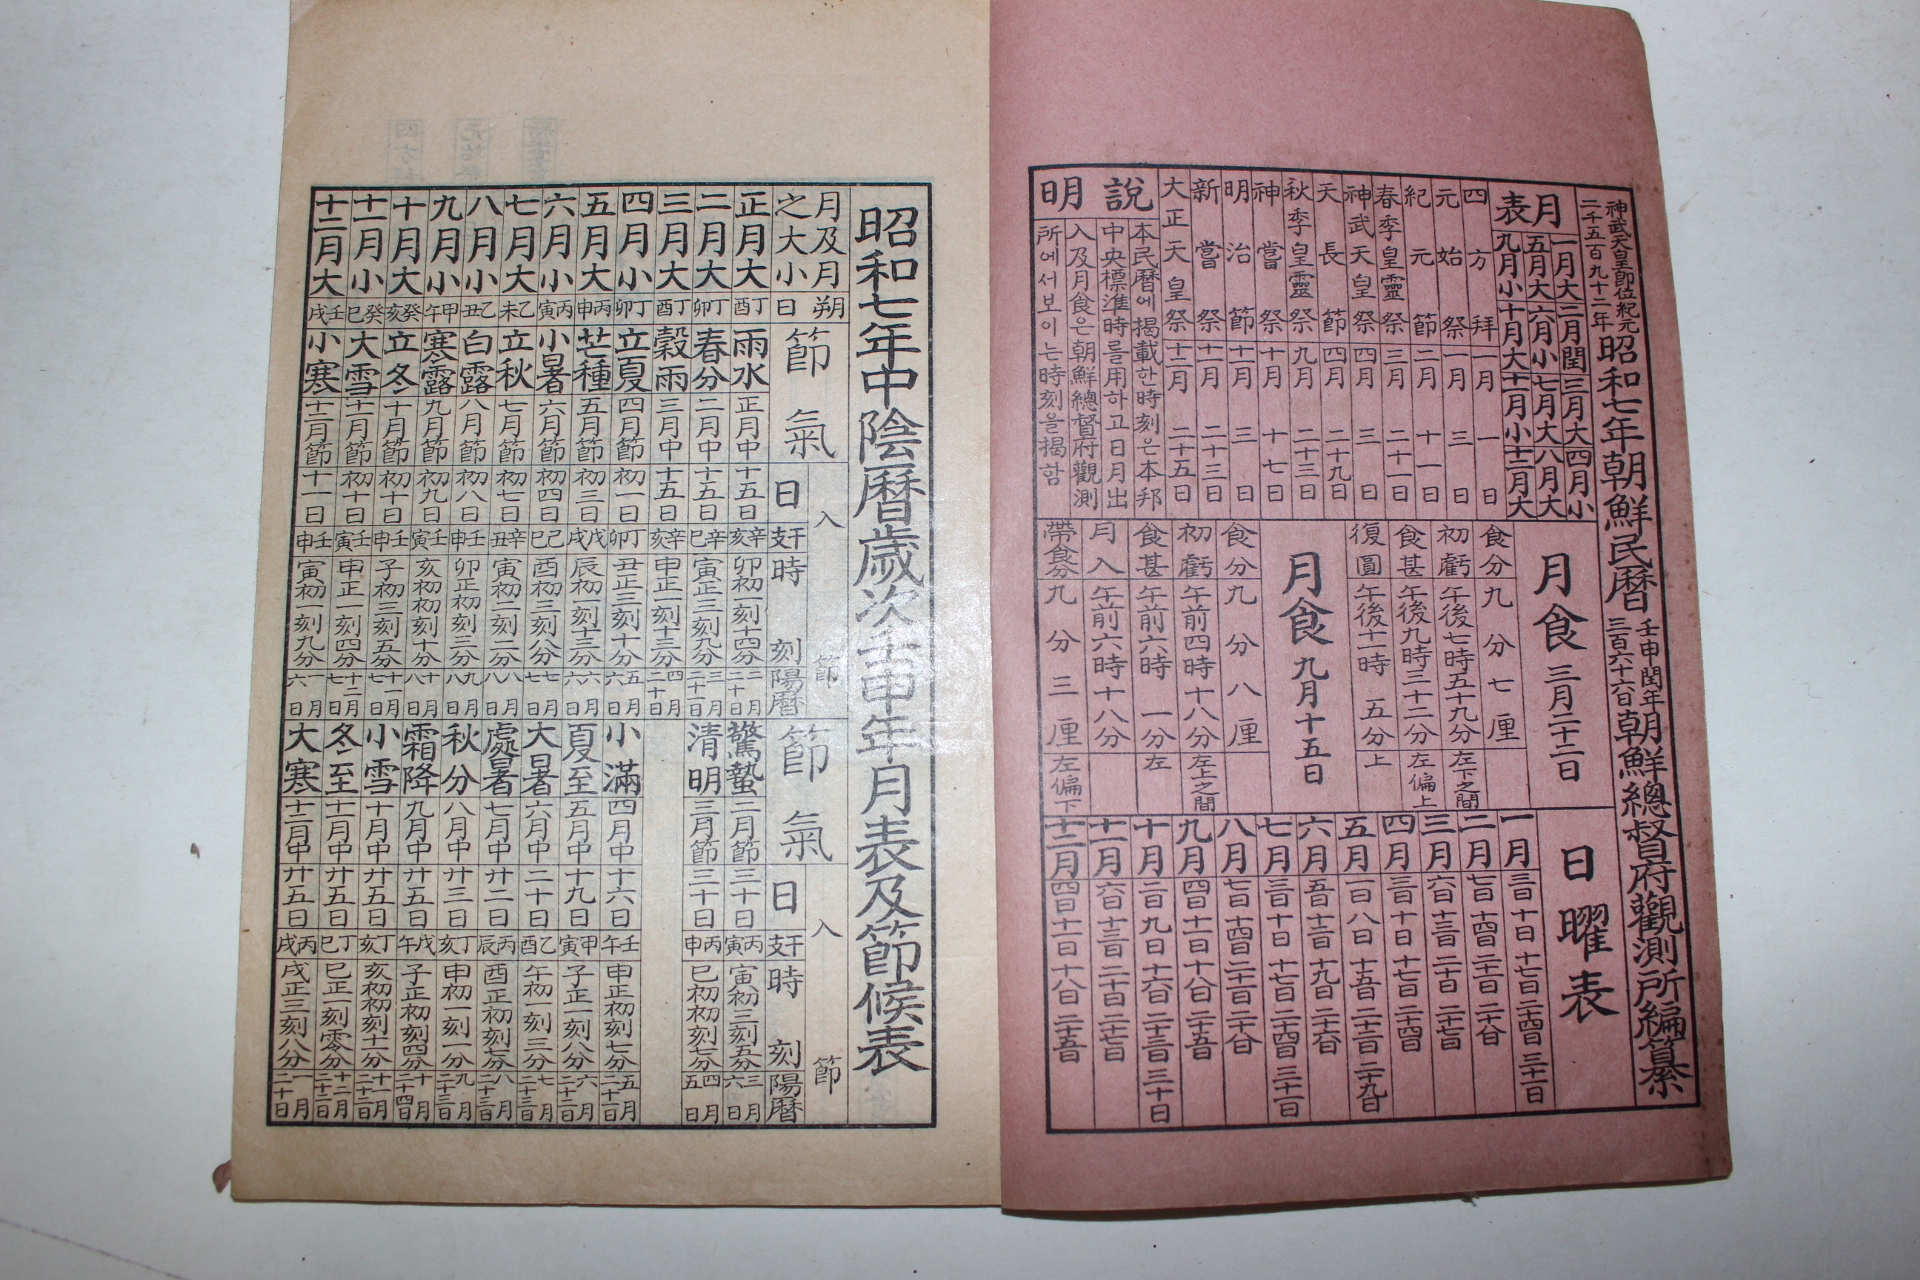 神武天皇卽位紀元
二千五百九十二年
昭和七年朝鮮民曆
壬申閏年
三百六十六日
朝鮮總督府觀測所編纂
月表
一月大二月閏三月大四月小
五月大六月小七月大八月大
九月小十月大十一月小十二月大
四方拜 一月 一日
元始祭 一月 三日
紀元節 二月 十一日
春季皇靈祭 三月 二十一日
神武天皇祭 四月 三日
天長節 四月 二十九日
秋季皇靈祭 九月 二十三日
神嘗祭 十月 十七日
明治節 十一月 三日
新嘗祭 十一月 二十三日
大正天皇祭 十二月 二十五日
說明
本民曆에揭載한時刻은本邦
中央標準時를用하고日月出
入及月食은朝鮮總督府觀測
所에서보이는時刻을揭함
月食 三月二十二日
食分 九分七厘
初虧 午後七時五十九分 左下之間
食甚 午後九時三十二分 左偏上
復圓 午後十一時五分 上
月食 九月十五日
食分 九分八厘
初虧 午前四時十八分 左上之間
食甚 午前六時一分 左
月入 午前六時十八分
帶食分 九分三厘 左偏下
日曜表
一月 三日 十日 十七日 二十四日 三十一日
二月 七日 十四日 二十一日 二十八日
三月 六日 十三日 二十日 二十七日
四月 三日 十日 十七日 二十四日
五月 一日 八日 十五日 二十二日 二十九日
六月 五日 十二日 十九日 二十六日
七月 三日 十日 十七日 二十四日 三十一日
八月 七日 十四日 二十一日 二十八日
九月 四日 十一日 十八日 二十五日
十月 二日 九日 十六日 二十三日 三十日
十一月 六日 十三日 二十日 二十七日
十二月 四日 十一日 十八日 二十五日
昭和七年中陰曆歲次壬申年月表及節候表
月及月之大小 朔日 節氣 入節 日 干支 時刻 陽曆 節氣 入節 日 干支 時刻 陽曆
正月大 丁酉 雨水 正月中 十五日 辛亥 卯初一刻十四分 二月二十日 驚蟄 二月節 三十日 丙寅 寅初三刻五分 三月六日
二月大 丁卯 春分 二月中 十五日 辛巳 寅正三刻九分 三月二十一日 清明 三月節 三十日 丙申 巳初初刻七分 四月五日
三月大 丁酉 穀雨 三月中 十五日 辛亥 申正一刻十三分 四月二十日
四月小 丁卯 立夏 四月節 初一日 丁卯 丑正三刻十分 五月六日 小滿 四月中 十六日 壬午 申正初刻七分 五月二十一日
五月大 丙申 芒種 五月節 初三日 戊戌 辰初一刻十三分 六月六日 夏至 五月中 十九日 甲寅 子正一刻八分 六月二十二日
六月小 丙寅 小暑 六月節 初四日 己巳 酉初三刻八分 七月七日 大暑 六月中 二十日 乙酉 午初一刻三分 七月二十三日
七月大 乙未 立秋 七月節 初七日 辛丑 寅初二刻二分 八月八日 處暑 七月中 廿二日 丙辰 酉正初刻七分 八月二十三日
八月小 乙丑 白露 八月節 初八日 壬申 卯正初刻三分 九月八日 秋分 八月中 廿三日 丁亥 申初一刻一分 九月二十三日
九月小 甲午 寒露 九月節 初九日 壬寅 亥初初刻十分 十月八日 霜降 九月中 廿五日 戊午 子正初刻四分 十月二十四日
十月大 癸亥 立冬 十月節 初十日 壬申 子初三刻五分 十一月七日 小雪 十月中 廿五日 丁亥 亥初初刻十分 十一月二十二日
十一月小 癸巳 大雪 十一月節 初十日 壬寅 申正一刻四分 十二月七日 冬至 十一月中 廿五日 丁巳 巳正一刻零分 十二月二十二日
十二月大 壬戌 小寒 十二月節 十一日 壬申 寅初一刻九分 一月六日 大寒 十二月中 廿五日 丙戌 戌正三刻八分 一月二十日